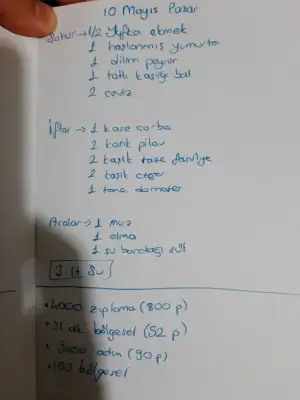 10 Mayıs Pazar
Sahur → 1/2 Yufka ekmek
1 haşlanmış yumurta
1 dilim peynir
1 tatlı kaşığı bal
2 ceviz
İftar → 1 kase çorba
2 kaşık pilav
2 kaşık taze fasulye
2 kaşık ciğer
1 tane domates
Aralar → 1 muz
1 elma
1 su bardağı süt
3 lt su
• 4000 zıplama (800 p)
• 31 dk bölgesel (52 p)
• 3000 adım (90 p)
• 100 bölgesel